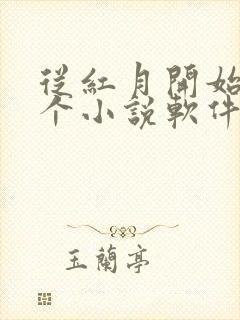 從紅月開始
个小說軟件
玉蘭亭